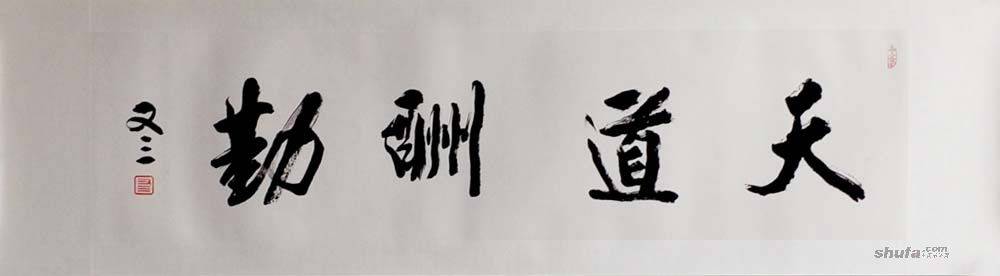 天道酬勤
又三
shufa.com